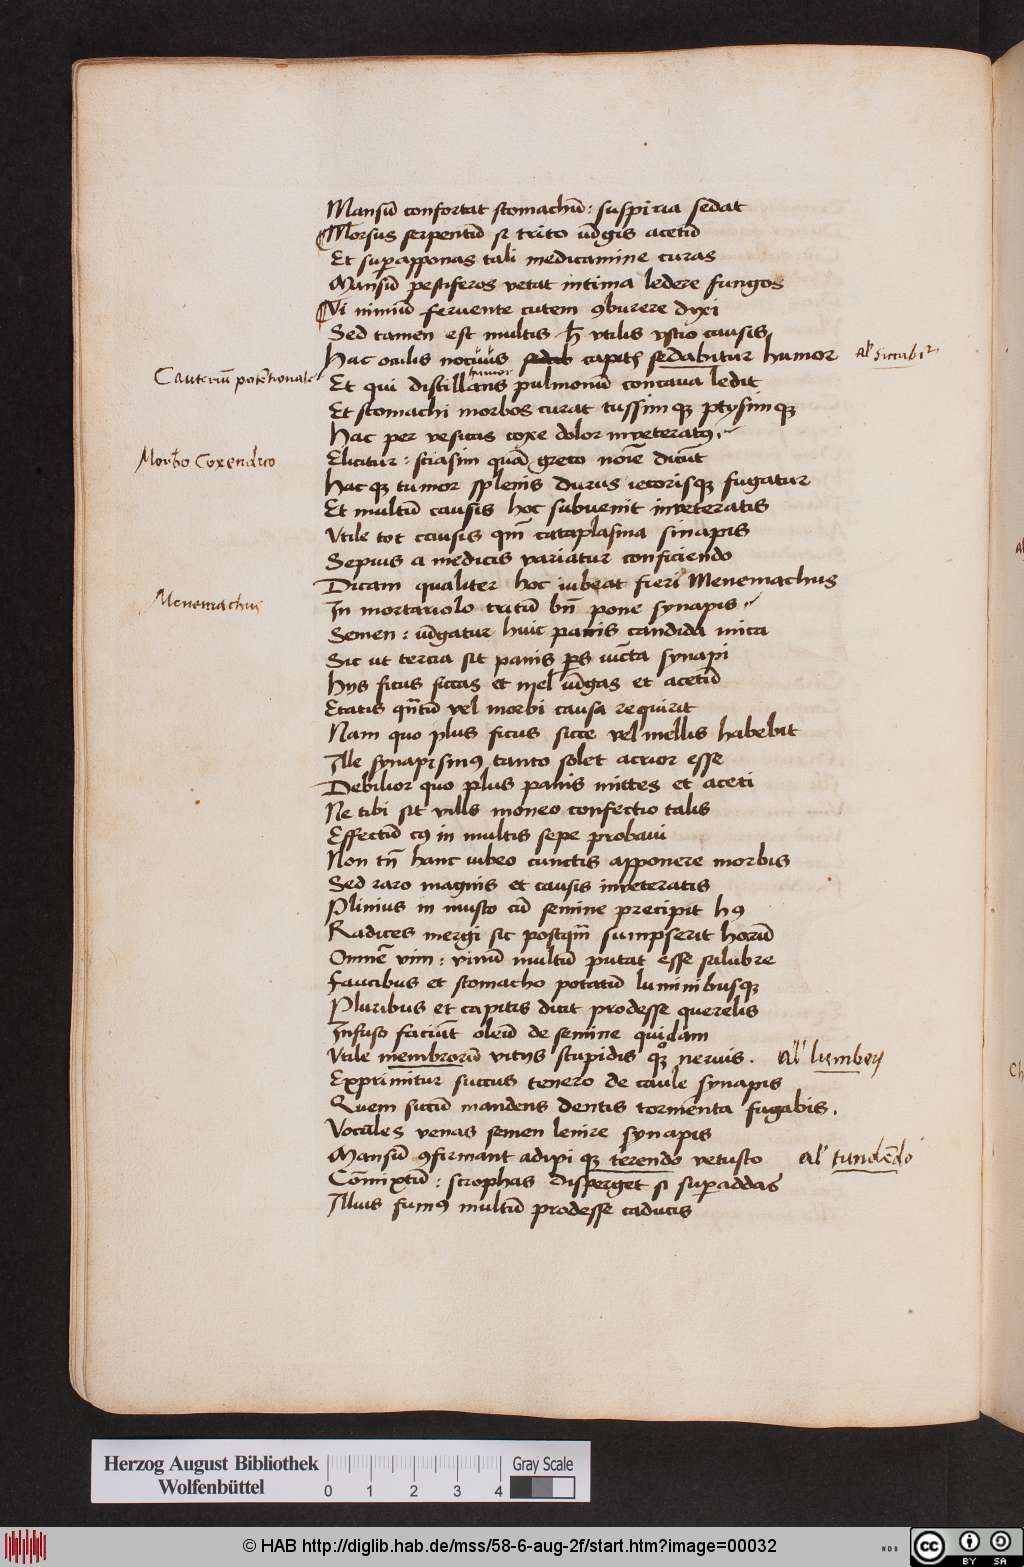 Mansū confortat stomachū: suspiria sedat
Morsus serpentū si trito iūgis acetū
Et sup̄apponas tali medicamine curas
Mansū pestiferos vetat intima ledere fungos
Vi nimiū feruente cutem ꝯburere dyxi
Sed tamen est multis h̄ vtilis vstio causis
Hac oculis nocuus capitꝭ sedabitur humor al' siccabit̉
Cauteriū potētionale
humor
Et qui distillans pulmonū concaua ledit
Et stomachi morbos curat tussimqꝫ ptysimqꝫ
Hac per vesicas coxe dolor inveteratꝰ
Morbo Coxendico
Elicitur: sciasim quā greco noīe dicūt
Hacqꝫ tumor splenis durus iecorisqꝫ fugatur
Et multū causis hoc subuenit inveteratis
Vtile tot causis qm̄ cataplasma sinapis
Sepius a medicis variatur conficiendo
Dicam qualiter hoc iubeat fieri Menemachus
Menemachus
In mortariolo tritū bn̄ pone synapis
Semen: iūgatur huic panis candida mica
Sic ut tercia sit panis ꝑs iūcta synapi
Hys ficus siccas et mel iūgas et acetū
Etatis qn̄tū vel morbi causa requirit
Nam quo plus ficus sicce vel mellis habebit
Ille synapismꝰ tanto solet acrior esse
Debilior quo plus panis mittes et aceti
Ne tibi sit vilis moneo confectio talis
Effectū cꝰ in multis sepe probaui
Non tn̄ hanc iubeo cunctis apponere morbis
Sed raro magnis et causis inveteratis
Plinius in musto cū semine precipit hꝰ
Radices mergi sic postqm̄ sumpserit horū
Omnē vim: vinū multū putat esse salubre
Faucibus et stomacho potatū luminibusqꝫ
Pluribus et capitis dicit prodesse querelis
Infuso faciūt oleū de semine quidam
Vtile membrorū vitiys stupidisqꝫ neruis. al' lumborꝝ
Exprimitur succus tenero de caule synapis
Quem sucū mandens dentis tormenta fugabis.
Vocales venas semen lenire synapis
Mansū ꝯfirmant adipiqꝫ terendo vetusto al' tundēdo
Cōmixtū: scrophas disperget si sup̄addas
Illius fumꝰ multū prodesse caducis
Herzog August Bibliothek
Wolfenbüttel
0 1 2 3 4
Gray Scale
© HAB http://diglib.hab.de/mss/58-6-aug-2f/start.htm?image=00032
WDB
cc BY SA